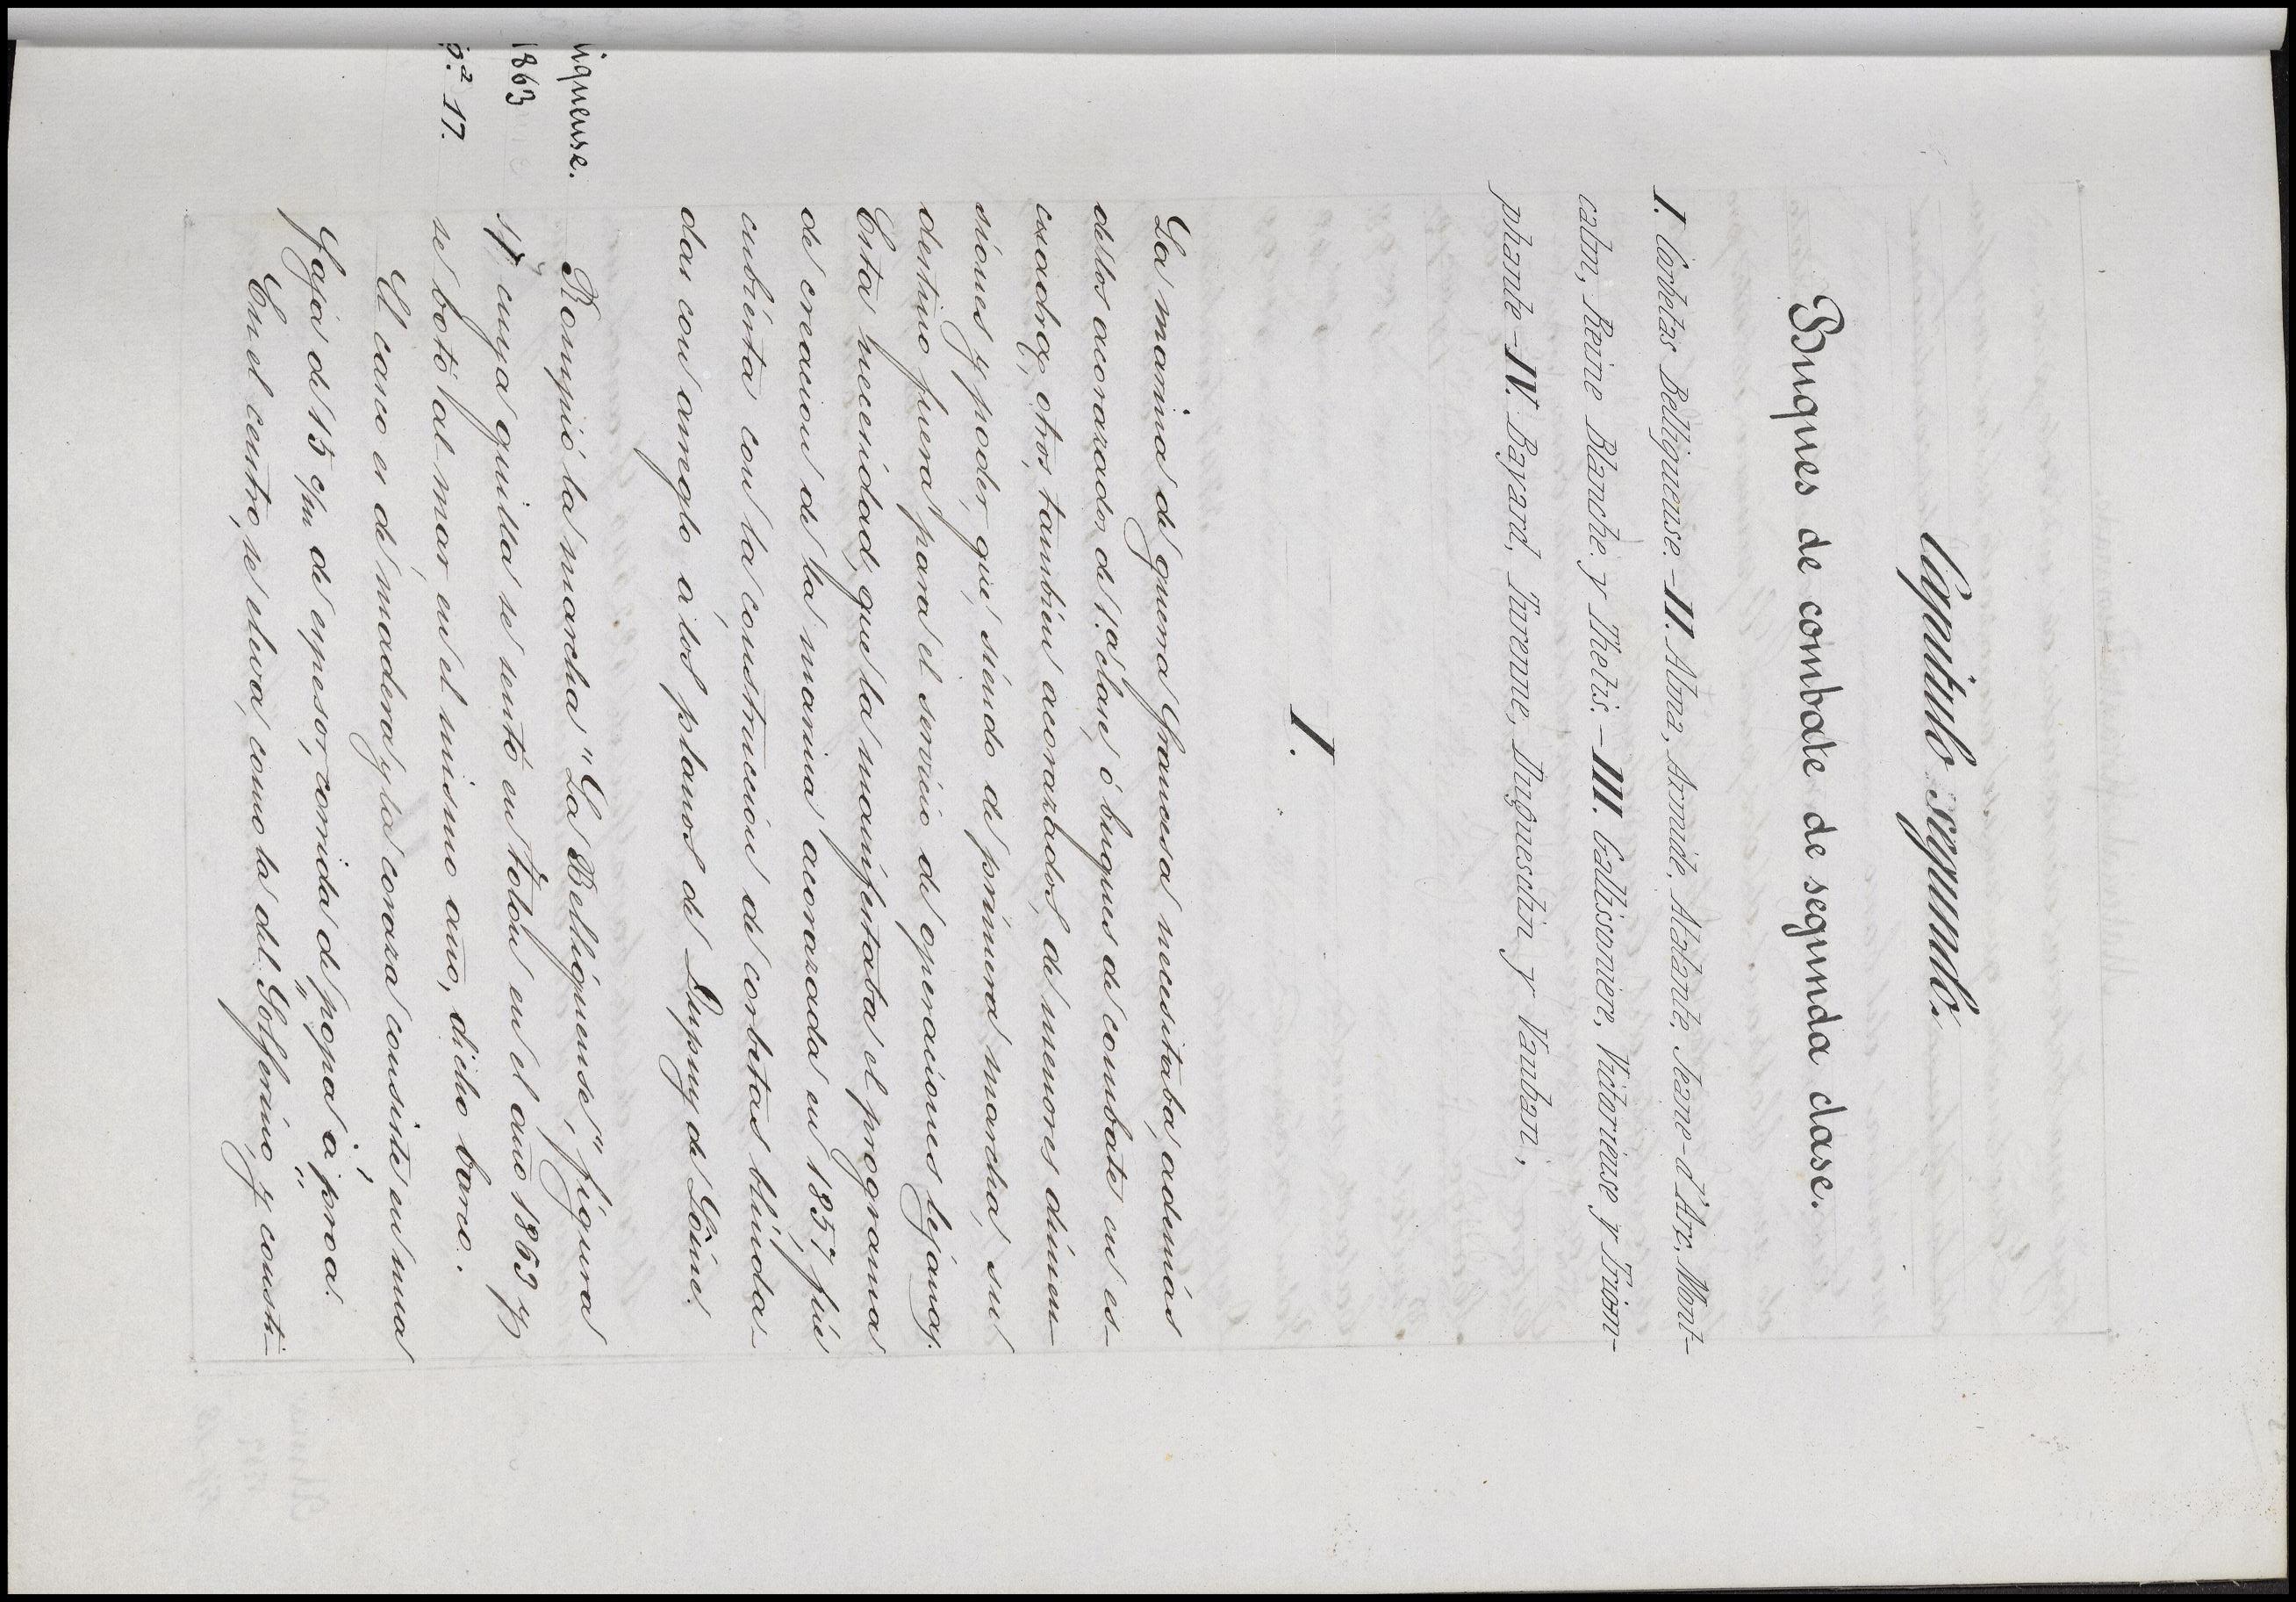 Capitulo segundo.
Buques de combate de segunda clase.
I. Corbetas Belliqueuse.-II. Alma, Armide, Atalante, Jeanne-d'Arc, Mont-
calm, Reine Blanche y Thetis.-III. Gallissonniere, Victorieuse y Triom-
phante-IV. Bayard, Turenne, Duguesclin y Vauban.
I.
La marina de guerra francesa necesitaba, ademas
de los acorazados de 1.ª clase, ó buques de combate en es-
cuadra, otros, tambien acorazados, de menores dimen-
siones y poder, que, siendo de primera marcha, su
destino fuera para el servicio de operaciones lejanas.
Esta necesidad, que la manifestaba el programa
de creacion de la marina acorazada en 1857, fué
cubierta con la construccion de corbetas blinda-
das con arreglo á los planos de Dupuy de Lôme.
iqueuse.
Rompió la marcha "La Belliqueuse," figura
1863
17, cuya quilla se sentó en Tolon en el año 1863 y
g.ª 17.
se botó al mar en el mismo año, dicho barco.
El casco es de madera y la coraza consiste en una
faja de 15 c/m de espesor, corrida de popa á proa.
En el centro, se eleva, como la del Solferino, y consti-